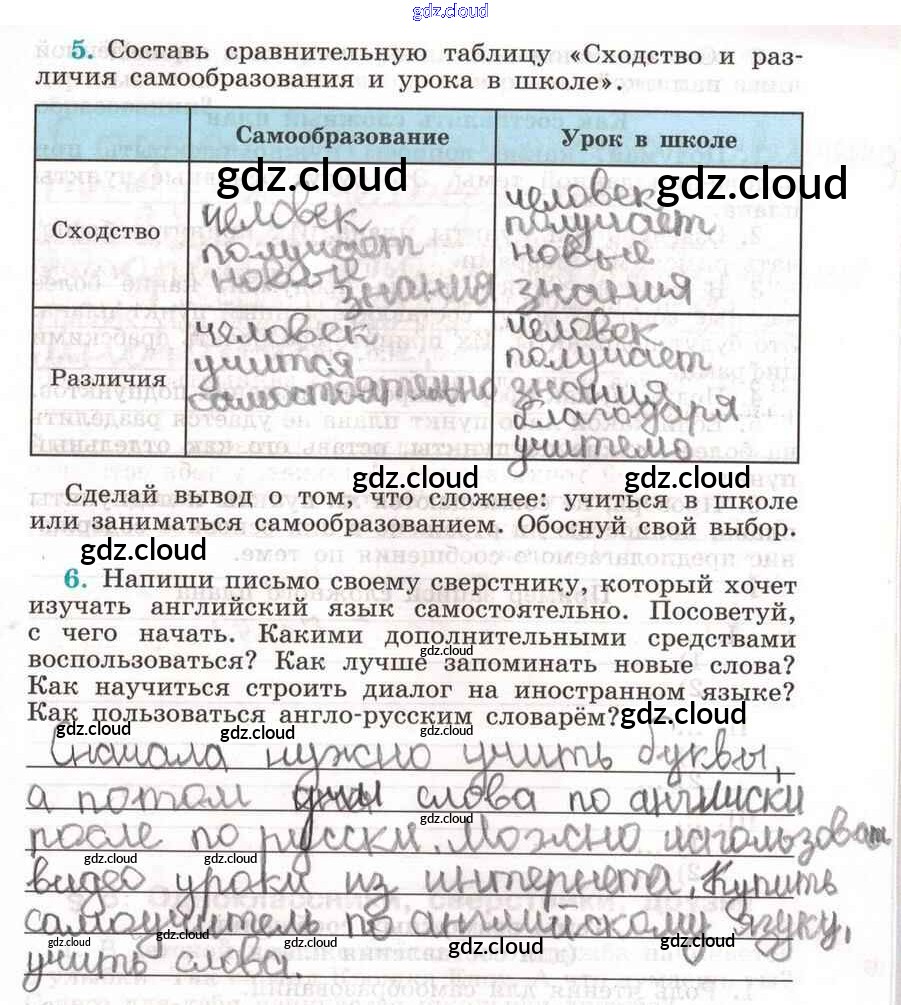 gdz.cloud
5. Составь сравнительную таблицу «Сходство и раз-
личия самообразования и урока в школе».
Самообразование
Урок в школе
gdz.cloud
gdz.cloud
Сходство
человек
получает
новые
знания
человек
получает
новые
знания
Различия
человек
учится
самостоятельно
человек
получает
знания
благодаря
учителю
gdz.cloud
gdz.cloud
Сделай вывод о том, что сложнее: учиться в школе
или заниматься самообразованием. Обоснуй свой выбор.
gdz.cloud
gdz.cloud
6. Напиши письмо своему сверстнику, который хочет
изучать английский язык самостоятельно. Посоветуй,
с чего начать. Какими дополнительными средствами
gdz.cloud
воспользоваться? Как лучше запоминать новые слова?
Как научиться строить диалог на иностранном языке?
Как пользоваться англо-русским словарём?
gdz.cloud
gdz.cloud
gdz.cloud
gdz.cloud
Сначала нужно учить буквы,
а потом слова по англиски
gdz.cloud
после по русски. Можно использоват
gdz.cloud
gdz.cloud
gdz.cloud
видео уроки из интернета, Купить
самоучитель по английскому языку,
gdz.cloud
gdz.cloud
gdz.cloud
gdz.cloud
учить слова.